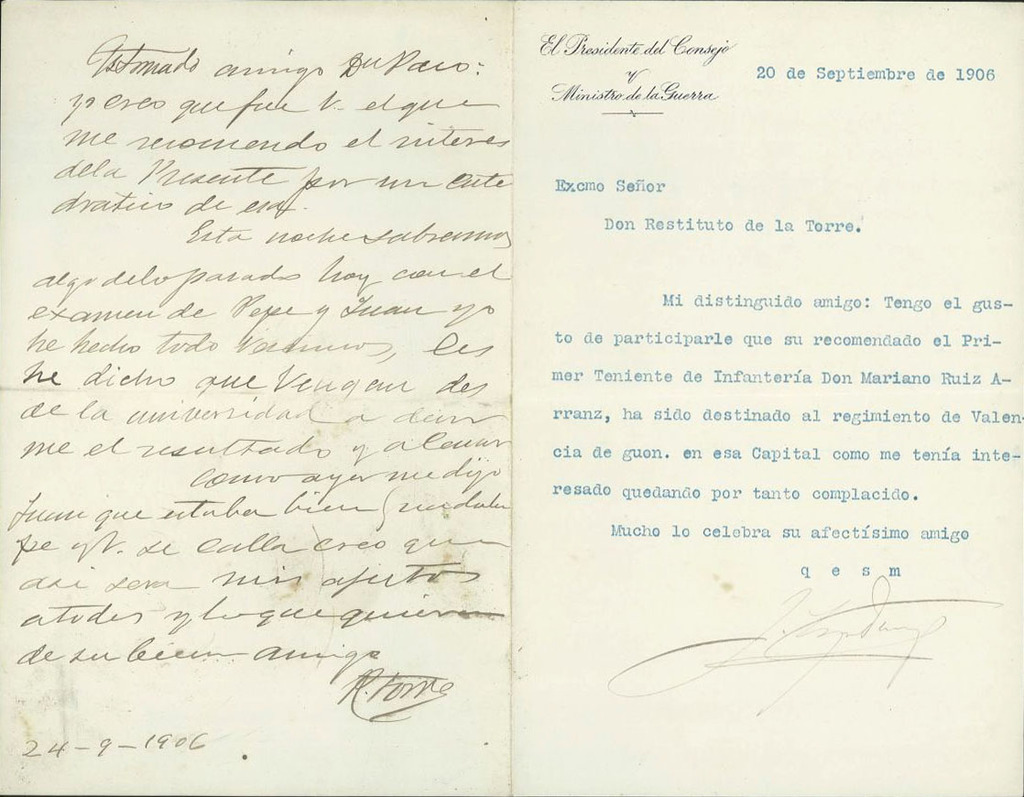 Estimado amigo Dn Paco:
yo creo que fue V. el que
me recomendo el interes
dela Presente por un cate
dratico de esa.
Esta noche sabremos
algo delo pasado hoy con el
examen de Pepe y Juan yo
he hecho todo             les
he dicho que vengan des
de la universidad a dar
me el resultado y a cenar
como ayer me dijo
Juan que estaba bien
Pe y V. se calla creo que
asi sera mis afectos
atodos y lo que quieran
de su buen amigo
R. Torre
24-9-1906
El Presidente del Consejo
y
Ministro de la Guerra
20 de Septiembre de 1906
Excmo Señor
Don Restituto de la Torre.
Mi distinguido amigo: Tengo el gus-
to de participarle que su recomendado el Pri-
mer Teniente de Infantería Don Mariano Ruiz A-
rranz, ha sido destinado al regimiento de Valen-
cia de guon. en esa Capital como me tenía inte-
resado quedando por tanto complacido.
Mucho lo celebra su afectísimo amigo
q e s m